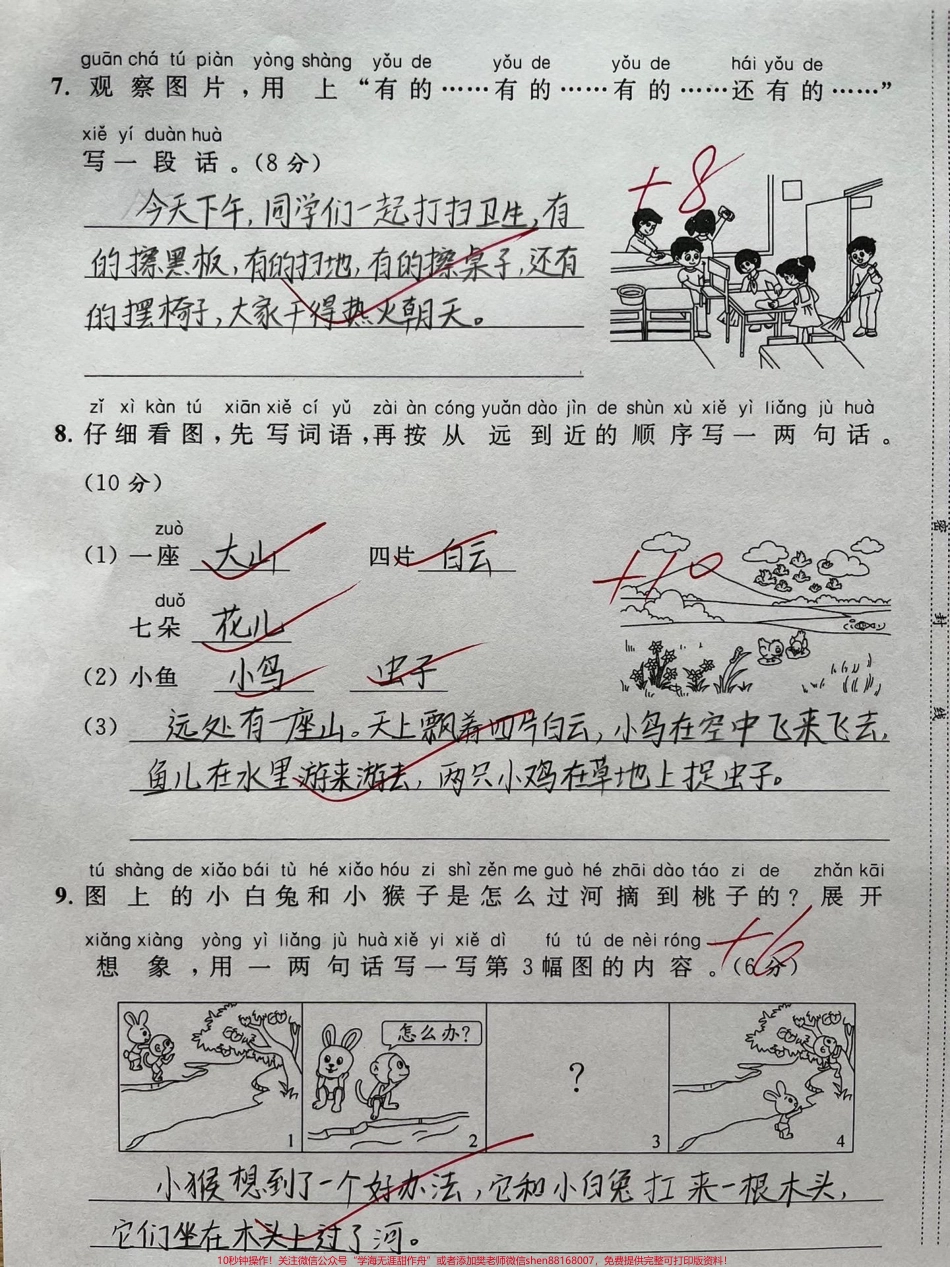 guān chá tú piàn yòng shàng yǒu de yǒu de yǒu de hái yǒu de
7. 观察图片，用上“有的……有的……有的……还有的……”
xiě yí duàn huà
写一段话。（8分）
+8
今天下午，同学们一起打扫卫生，有
的擦黑板，有的扫地，有的擦桌子，还有
的摆椅子，大家干得热火朝天。
zǐ xì kàn tú xiān xiě cí yǔ zài àn cóng yuǎn dào jìn de shùn xù xiě yì liǎng jù huà
8. 仔细看图，先写词语，再按从远到近的顺序写一两句话。
（10分）
+10
zuò
（1）一座 大山 四片 白云
duǒ
七朵 花儿
（2）小鱼 小鸟 虫子
（3）远处有一座山。天上飘着四片白云，小鸟在空中飞来飞去，
鱼儿在水里游来游去，两只小鸡在草地上捉虫子。
密
封
线
tú shàng de xiǎo bái tù hé xiǎo hóu zi shì zěn me guò hé zhāi dào táo zi de zhǎn kāi
9. 图上的小白兔和小猴子是怎么过河摘到桃子的？展开
xiǎng xiàng yòng yì liǎng jù huà xiě yi xiě dì fú tú de nèi róng
想象，用一两句话写一写第3幅图的内容。（6分）
+6
怎么办？
?
1 2 3 4
小猴想到了一个好办法，它和小白兔扛来一根木头，
它们坐在木头上过了河。
10秒钟操作！关注微信公众号“学海无涯甜作舟”或者添加樊老师微信shen88168007，免费提供完整可打印版资料！